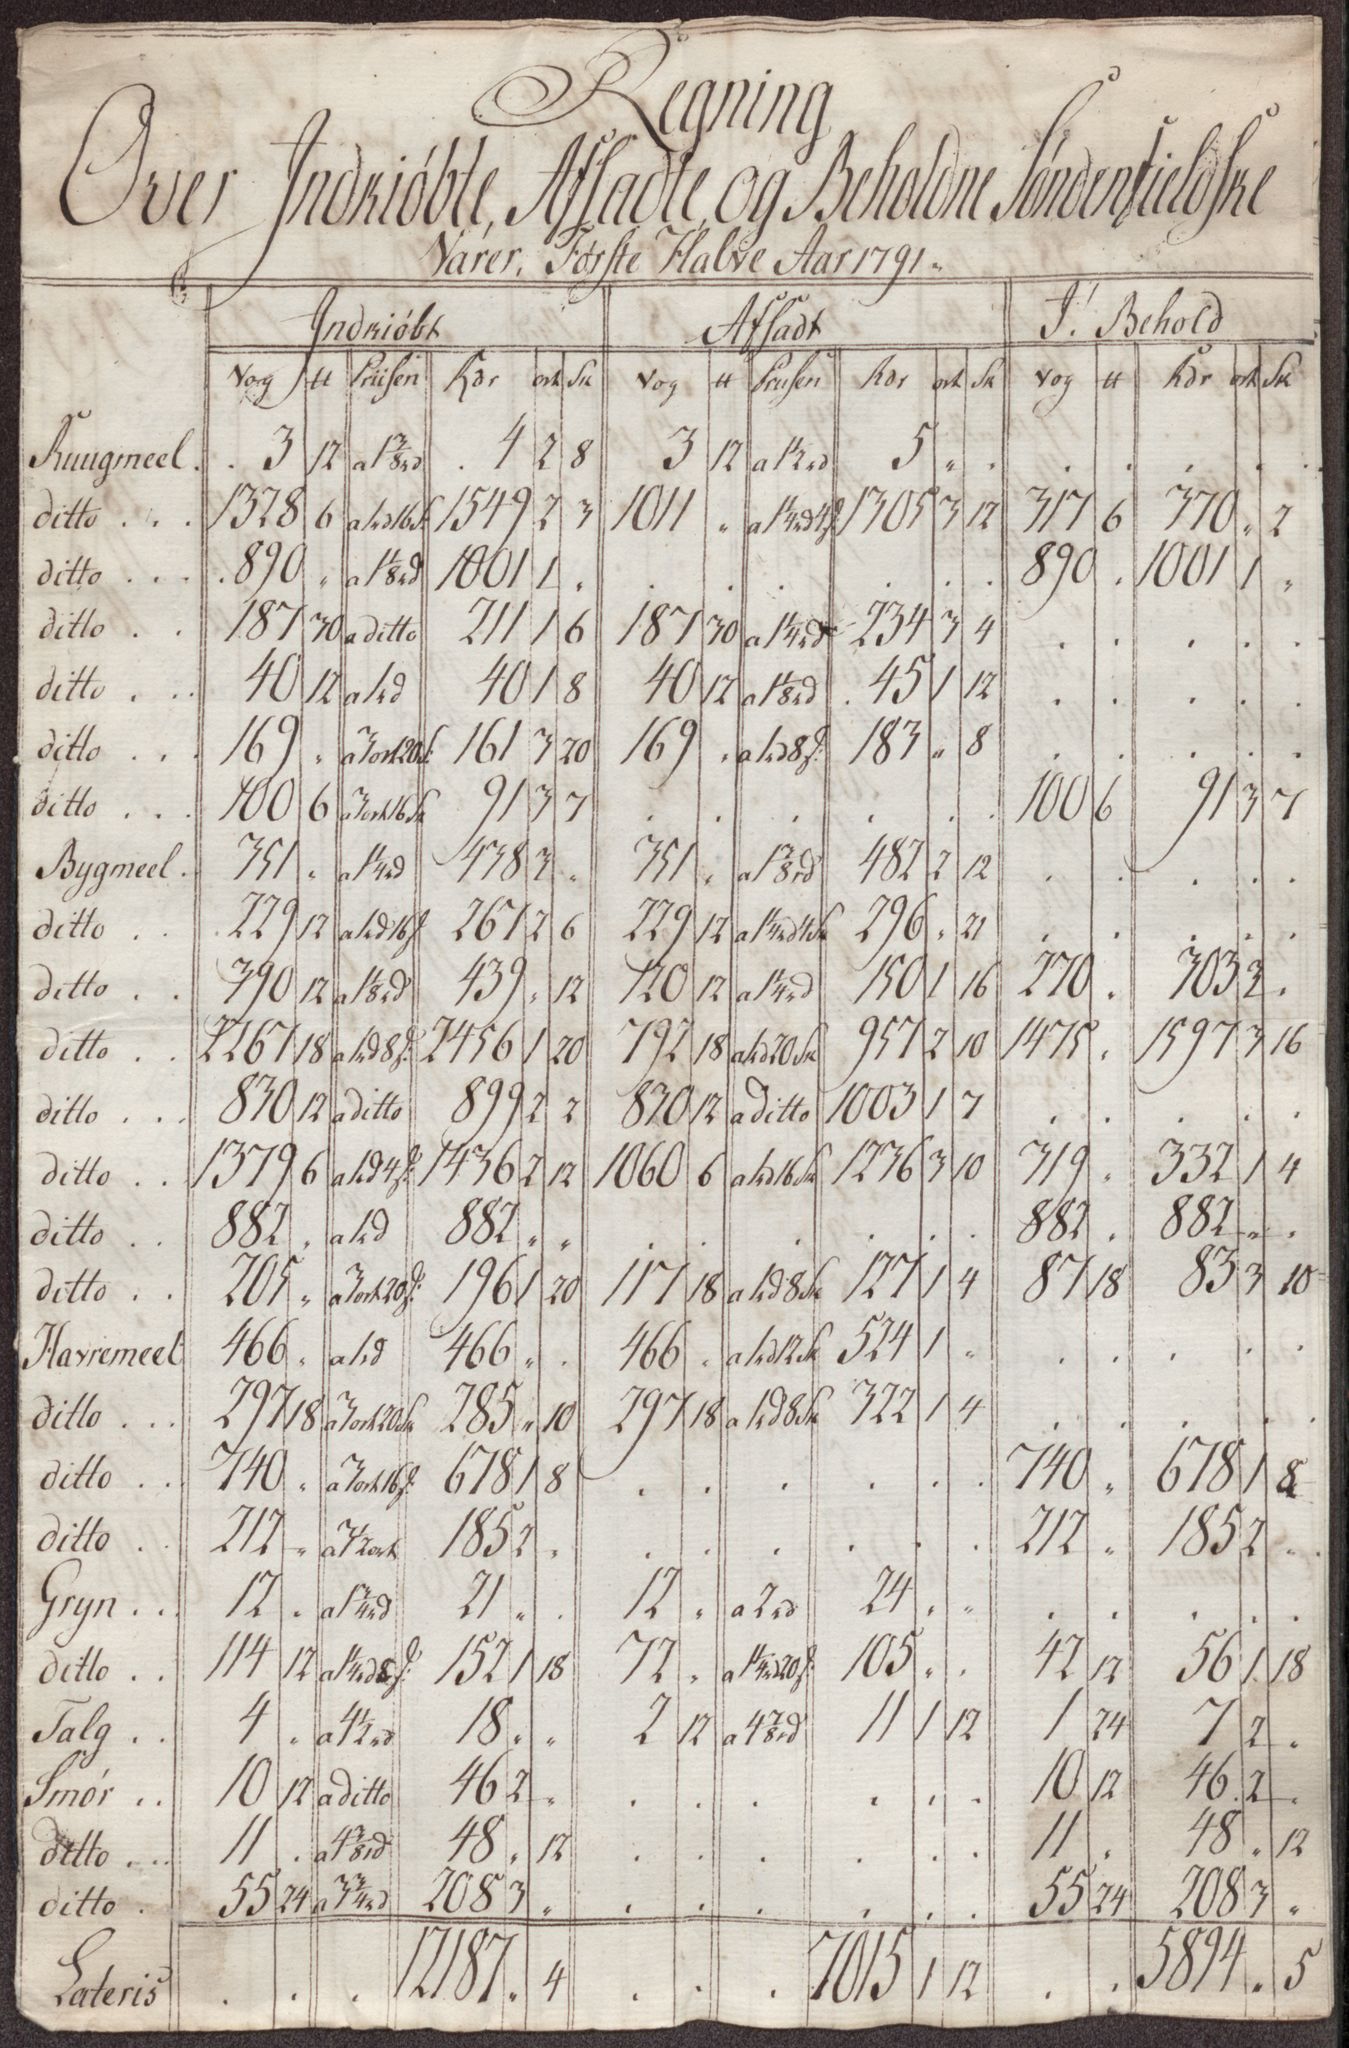 Regning
Over Indkiøbte, Afsadte, og Beholdne Søndenfieldske
Varer, Første Halve Aar 1791.
Indkiøbt Afsadt J. Behold
Vog tt Prisen Rdr ort Sk Vog tt Prisen Rdr ort Sk Vog tt Rdr ort Sk
Ruugmeel . . 3 12 a 1 3/8 rd . 4 2 8 3 12 a 1 1/2 rd 5 " . . . . . .
ditto . . . 1328 6 a 1 rd 16 s 1549 2 3 1011 " a 1 1/4 rd 4 s 1305 3 12 317 6 370 " 2
ditto . . . . 890 " a 1 1/8 rd 1001 1 " . . . . . . 890 . 1001 1 "
ditto . . 187 30 a ditto 211 1 6 187 30 a 1 1/4 rd 234 3 4 . . . . .
ditto . . . 40 12 a 1 rd 40 1 8 40 12 a 1 1/8 rd . 45 1 12 . . . . .
ditto . . . 169 " a 3 ort 20 s 161 3 20 169 " a 1 rd 8 s 183 " 8 . . . . .
ditto . . . 100 6 a 3 ort 16 sk 91 3 7 . . . . . . 100 6 91 3 7
Bygmeel . 351 " a 1 1/4 rd 438 3 " 351 " a 1 3/8 rd 482 2 12 . . . . .
ditto . . 229 12 a 1 rd 16 s 267 2 6 229 12 a 1 1/4 rd 4 sk 296 " 21 . . . . .
ditto . . 390 12 a 1 1/8 rd 439 " 12 120 12 a 1 1/4 rd 150 1 16 270 " 303 3 .
ditto . . 2267 18 a 1 rd 8 s 2456 1 20 792 18 a 1 rd 20 sk 957 2 10 1475 " 1597 3 16
ditto . . . 830 12 a ditto 899 2 2 830 12 a ditto 1003 1 7 . . . . .
ditto . . 1379 6 a 1 rd 4 s 1436 2 12 1060 6 a 1 rd 16 sk 1236 3 10 319 " 332 1 4
ditto . . 882 . a 1 rd 882 " " . . . . . . 882 . 882 " .
ditto . . 205 " a 3 ort 20 s 196 1 20 117 18 a 1 rd 8 sk 127 1 4 87 18 83 3 10
Havremeel 466 " a 1 rd 466 " . 466 " a 1 rd 12 sk 524 1 " . . . . .
ditto . . . 297 18 a 3 ort 20 sk 285 " 10 297 18 a 1 rd 8 sk 322 1 4 . . . . .
ditto . . . 740 " a 3 ort 16 s 678 1 8 . . . . . . 740 " 678 1 8
ditto . . 212 " a 3 1/2 ort 185 2 " . . . . . . 212 " 185 2 "
Gryn . . . 12 . a 1 3/4 rd 21 " . 12 " a 2 rd 24 " " . . . . .
ditto . . 114 12 a 1 1/4 rd 8 s 152 1 18 72 " a 1 1/4 rd 20 s 105 " . 42 12 56 1 18
Talg . . 4 " a 4 1/2 rd 18 " " 2 12 a 4 7/8 rd 11 1 12 1 24 7 2 "
Smör . . 10 12 a ditto 46 2 " . . . . . . 10 12 46 2 .
ditto . . . 11 . a 4 3/8 rd 48 " 12 . . . . . . 11 " 48 " 12
ditto . 55 24 a 3 3/4 rd 208 3 " . . . . . . 55 24 208 3 "
Lateris . . . 12187 " 4 . . . 7015 1 12 . . 5894 " 5